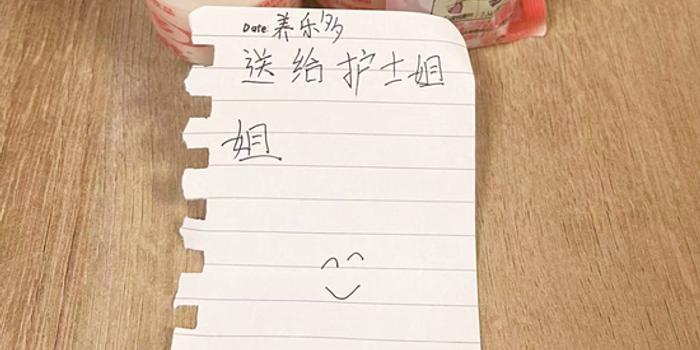 Date: 养乐多
送给护士姐
姐